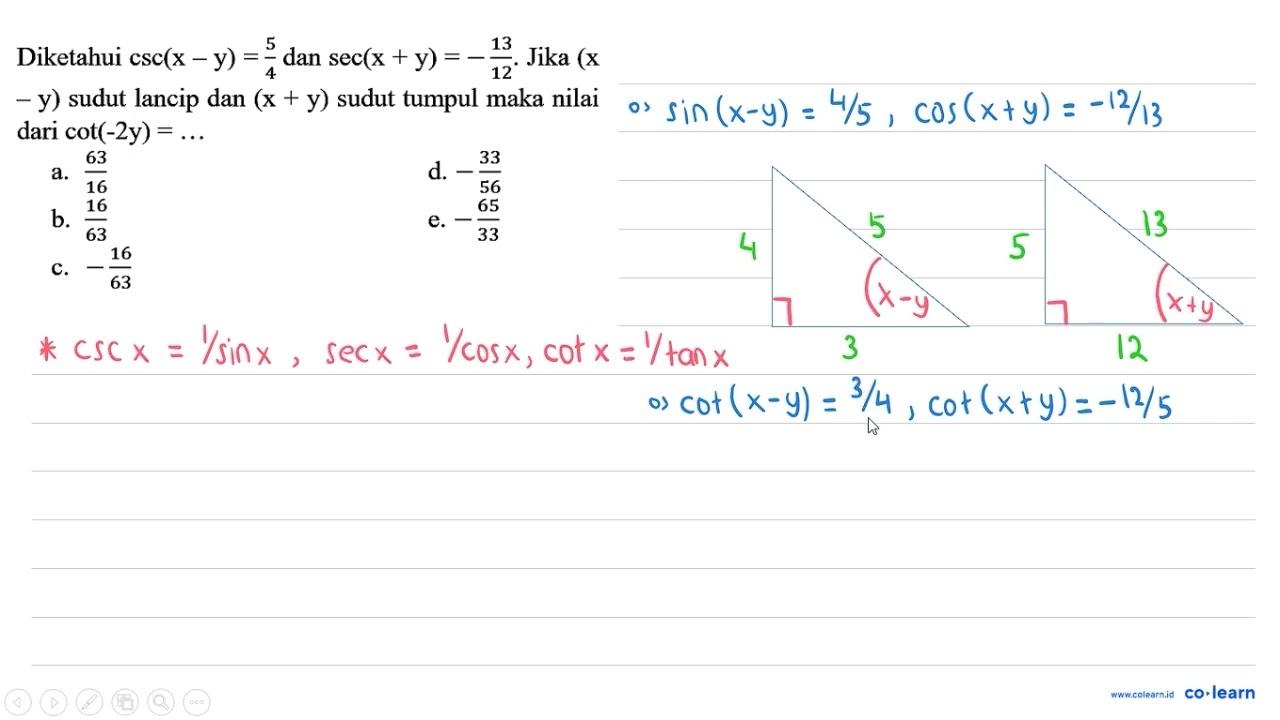 Diketahui csc(x – y) = 5/4 dan sec(x + y) = −13/12. Jika (x
– y) sudut lancip dan (x + y) sudut tumpul maka nilai
dari cot(-2y) = …
a. 63/16
b. 16/63
c. −16/63
d. −33/56
e. −65/33
sin(x-y) = 4/5 , cos(x+y) = -12/13
4
5
x-y
3
5
13
x+y
12
* csc x = 1/sin x , sec x = 1/cos x, cot x = 1/tan x
cot(x-y) = 3/4 , cot(x+y) = -12/5
www.colearn.id co·learn